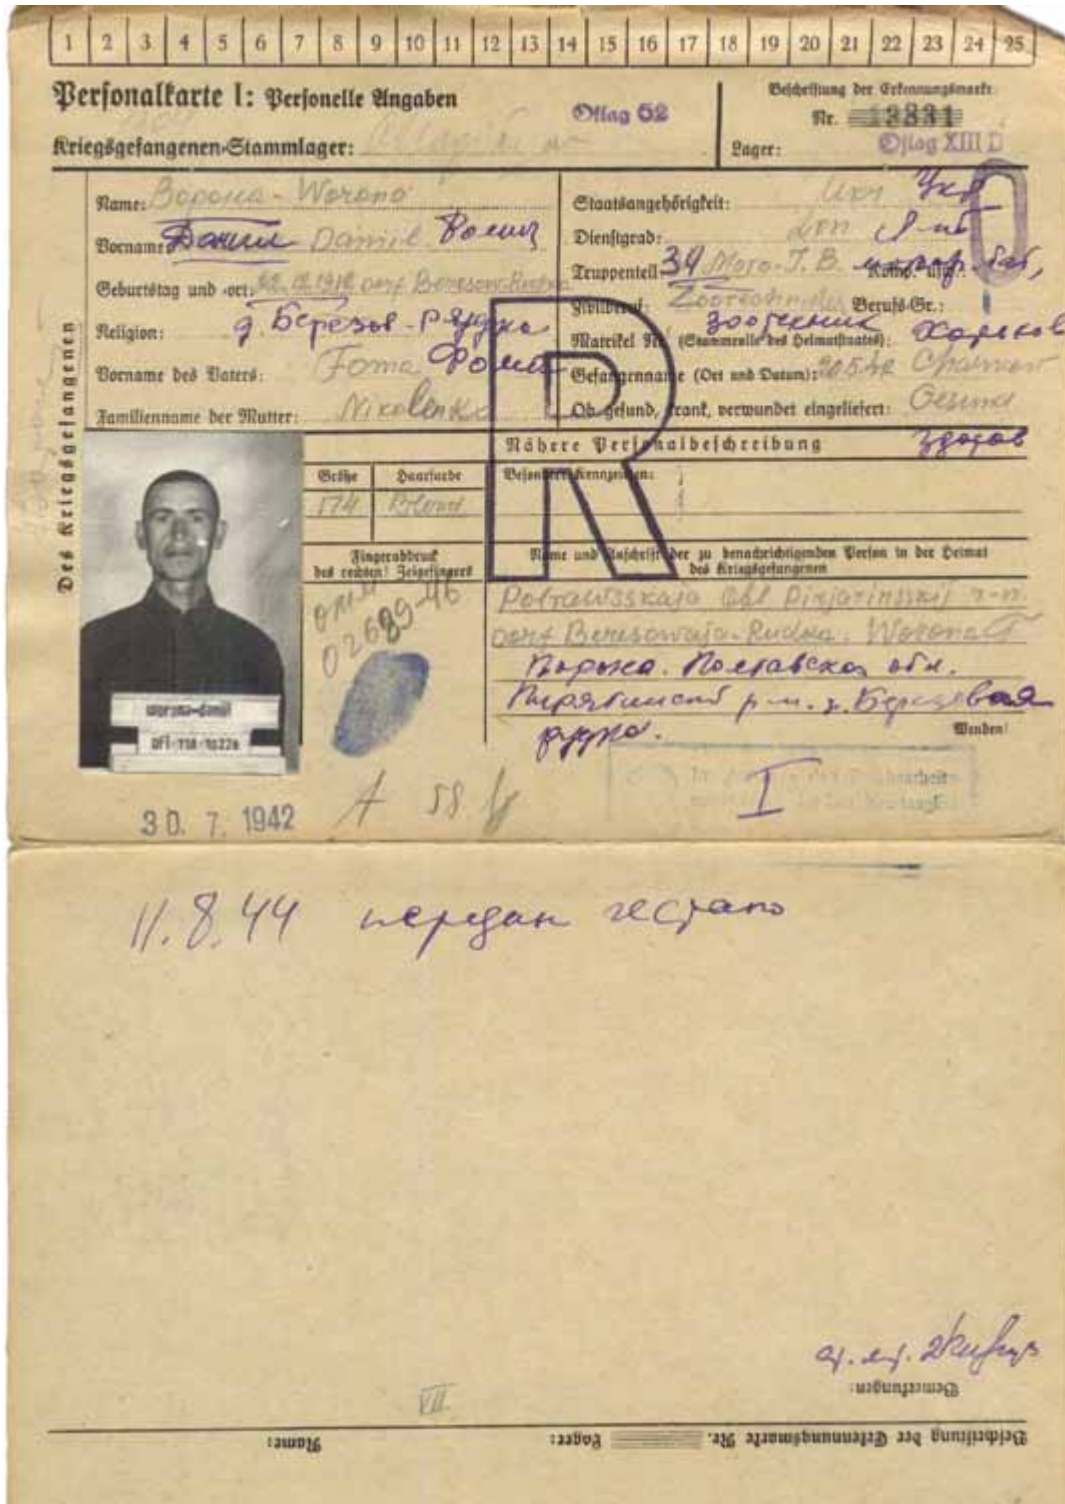 1 2 3 4 5 6 7 8 9 10 11 12 13 14 15 16 17 18 19 20 21 22 23 24 25
Personalkarte I: Personelle Angaben
Kriegsgefangenen-Stammlager:
Oflag 62
Beschriftung der Erkennungsmarke
Nr. 13831
Lager: Oflag XIII D
Des Kriegsgefangenen
Name: Ворона - Worona
Vorname: Данил Daniil Фомич
Geburtstag und -ort: dorf
Religion: д. Березов-Рудка
Vorname des Vaters: Foma Фома
Familienname der Mutter: Nikolenko
Staatsangehörigkeit: Укр
Dienstgrad: л-нт
Truppenteil: 34 Moto-J.B. Komp. usw.:
Zivilberuf: Zootechniker Berufs-Gr.:
зоотехник
Matrikel Nr. (Stammrolle des Heimatstaates): Харьков
Gefangennahme (Ort und Datum): 20.5.42 Charkow
Ob gesund, krank, verwundet eingeliefert: Gesund
здоров
R
Nähere Personalbeschreibung
Größe Haarfarbe Besondere Kennzeichen:
174 Blond
Fingerabdruck
des rechten! Zeigefingers
Name und Anschrift der zu benachrichtigenden Person in der Heimat
des Kriegsgefangenen
02689-46
Poltawsskaja Obl. Pirjatinsskij r-n.
dorf Beresowaja-Rudka. Worona F
Ворона. Полтавская обл.
Пирятинский р-н. д. Березовая
рудка.
Wenden!
worona-daniil
30. 7. 1942
I
11.8.44 передан гестапо
Bemerkungen:
VII.
Beschriftung der Erkennungsmarke Nr. Lager: Name: